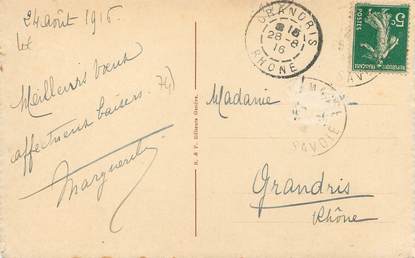 24 août 1916
Meilleurs vœux
affectueux baisers
Marguerite
74)
B. & F. Editeurs Genève.
GRANDRIS
28-8
16
RHÔNE
5c
POSTES
SAVOIE
Madame
Grandris
Rhône